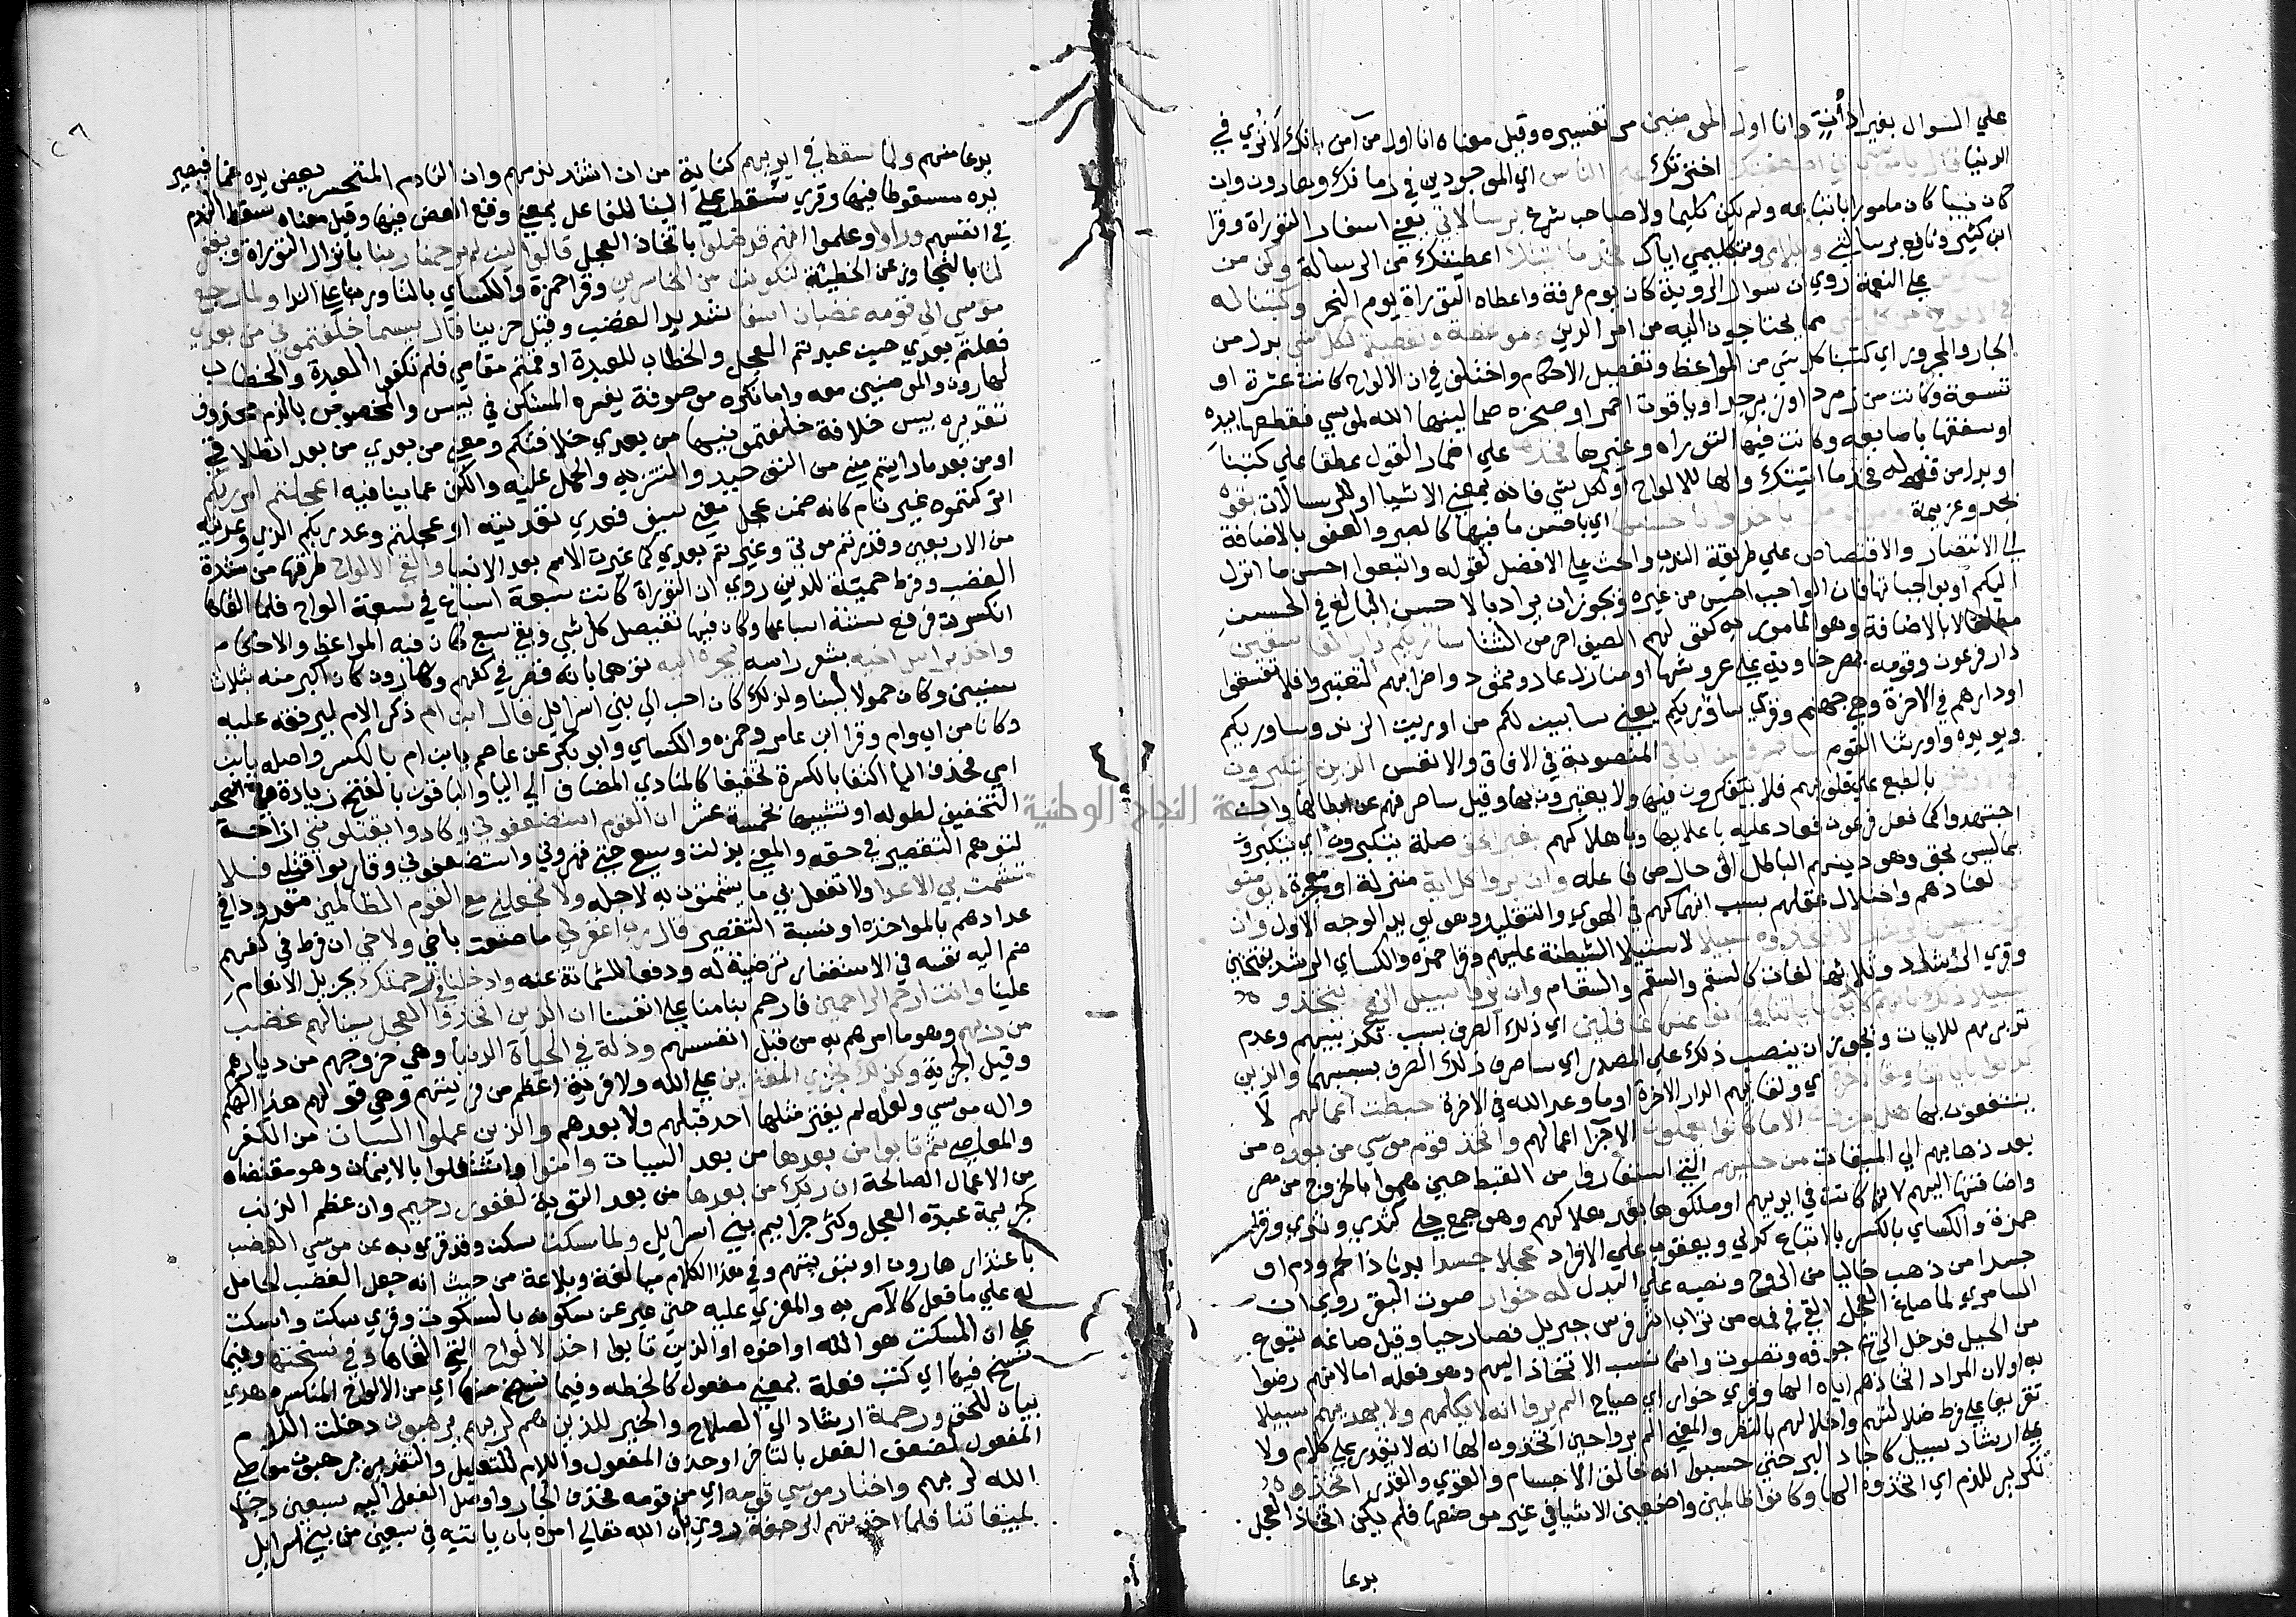 علي السوال بغير اذن وانا اول المومنين مر تفسيره وقيل معناه انا اول من آمن بانك لا تري في
الدنيا قال يا موسي اني اصطفيتك اخترتك علي الناس اي الموجودين في زمانك وهارون وان
كان نبيا كان مامورا باتباعه ولم يكن كليما ولا صاحب شرع برسالاتي يعني اسفار التوراة وقرا
ابن كثير ونافع برسالتي وبكلامي وبتكليمي اياك فخذ ما اتيتك اعطيتك من الرسالة وكن من
الشاكرين علي النعمة روي ان سوال الروية كان يوم عرفة واعطاه التوراة يوم النحر وكتبنا له
في الالواح من كل شي مما يحتاجون اليه من امر الدين موعظة وتفصيلا لكل شي بدل من
الجار والمجرور اي كتبنا كل شي من المواعظ وتفصيل الاحكام واختلف في ان الالواح كانت عشرة او
تسعة وكانت من زمرد او زبرجد او ياقوت احمر او صخرة صما لينها الله لموسي فقطعها بيده
او سقفها باصابعه وكانت فيها التوراه وغيرها فخذها علي اضمار القول عطفا علي كتبنا
او بدل من قوله فخذ ما اتيتك والها للالواح او لكل شي فانه بمعني الاشيا او للرسالات بقوة
بجد وعزيمة وامر قومك ياخذوا باحسنها اي باحسن ما فيها كالصبر والعفو بالاضافة
الي الانتصار والاقتصاص علي طريقة الندب والحث علي الافضل لقوله واتبعوا احسن ما انزل
اليكم او بواجباتها فان الواجب احسن من غيره ويجوز ان يراد بالاحسن البالغ في الحسن
مطلقا لا بالاضافة وهو المامور به كقولهم الصيف احر من الشتا ساريكم دار الفاسقين
دار فرعون وقومه بمصر خاوية علي عروشها او منازل عاد وثمود واضرابهم لتعتبروا فلا تفسقوا
او دارهم في الاخرة وهي جهنم وقري ساوريكم بمعني سابين لكم من اوريت الزند وساورثكم
ويويده واورثنا القوم ساصرف عن اياتي المنصوبة في الافاق والانفس الذين يتكبرون
في الارض بالطبع علي قلوبهم فلا يتفكرون فيها ولا يعتبرون بها وقيل ساصرفهم عن ابطالها وان
اجتهدوا كما فعل فرعون فعاد عليه باعلايها وباهلاكهم بغير الحق صلة يتكبرون اي يتكبرون
بما ليس بحق وهو دينهم الباطل او حال من فاعله وان يروا كل اية منزلة او معجزة لا يومنوا
بها لعنادهم واختلال عقلهم بسبب انهماكهم في الهوي والتقليد وهو يويد الوجه الاول وان
يروا سبيل الرشد لا يتخذوه سبيلا لاستيلا الشيطنة عليهم وقرا حمزة والكساي الرشد بفتحتين
وقري الرشاد وثلاثتها لغات كالسقم والسقم والسقام وان يروا سبيل الغي يتخذوه
سبيلا ذلك بانهم كذبوا باياتنا وكانوا عنها غافلين اي ذلك الصرف بسبب تكذيبهم وعدم
تدبرهم للايات ويجوز ان ينصب ذلك علي المصدر اي ساصرف ذلك الصرف بسببهما والذين
كذبوا باياتنا ولقا الاخرة اي ولقايهم الدار الاخرة او ما وعد الله في الاخرة حبطت اعمالهم لا
ينتفعون بها هل يجزون الا ما كانوا يعملون الا جزا اعمالهم واتخذ قوم موسي من بعده من
بعد ذهابهم الي الميقات من حليهم التي استعاروا من القبط حين هموا بالخروج من مصر
واضافتها اليهم لانها كانت في ايديهم او ملكوها بعد هلاكهم وهو جمع حلي كثدي وثدي وقرا
حمزة والكساي بالكسر بالاتباع كدلي ويعقوب علي الافراد عجلا جسدا بدنا ذا لحم ودم او
جسدا من ذهب خاليا من الروح ونصبه علي البدل له خوار صوت البقر روي ان
السامري لما صاغ العجل القي في فمه من تراب اثر فرس جبريل فصار حيا وقيل صاغه بنوع
من الحيل فدخل الريح جوفه وتصوت وانما نسب الاتخاذ اليهم وهو فعله اما لانهم رضوا
به او لان المراد اتخاذهم اياه الها وقري جوار اي صياح الم يروا انه لا يكلمهم ولا يهديهم سبيلا
تقريع علي فرط ضلالتهم واخلالهم بالنظر والمعني الم يروا حين اتخذوه الها انه لا يقدر علي كلام ولا
علي ارشاد سبيل كاحاد البشر حتي حسبوا انه خالق الاجسام والقوي والقدر اتخذوه
تكرير للذم اي اتخذوه الها وكانوا ظالمين واضعين الاشيا في غير موضعها فلم يكن اتخاذ العجل
بدعا
بدعا منهم ولما سقط في ايديهم كناية من ان اشتد ندمهم فان النادم المتحسر يعض يده غما فيصير
يده مسقوطا فيها وقري سقط علي البنا للفاعل بمعني وقع العض فيها وقيل معناه سقط الندم
في انفسهم وراوا وعلموا انهم قد ضلوا باتخاذ العجل قالوا لين لم يرحمنا ربنا بانزال التوراة ويغفر
لنا بالتجاوز عن الخطيئة لنكونن من الخاسرين وقرا حمزة والكساي بالتا وربنا علي الندا ولما رجع
موسي الي قومه غضبان اسفا شديد الغضب وقيل حزينا قال بيسما خلفتموني من بعدي
فعلتم بعدي حيث عبدتم العجل والخطاب للعبدة او قمتم مقامي فلم تكفوا العبدة والخطاب
لهارون والمومنين معه وما نكرة موصوفة يفسره المستكن في بيس والمخصوص بالذم محذوف
تقديره بيس خلافة خلفتمونيها من بعدي خلافتكم ومعني من بعدي من بعد انطلاقي
او من بعد ما رايتم مني من التوحيد والتنزيه والحمل عليه والكف عما ينافيه اعجلتم امر ربكم
اتركتموه غير تام كانه ضمن عجل معني سبق فعدي تعديته او عجلتم وعد ربكم الذي وعدنيه
من الاربعين وقدرتم موتي وغيرتم بعدي كما غيرت الامم بعد الانبيا والقي الالواح طرحها من شدة
الغضب وفرط حمية للدين روي ان التوراة كانت سبعة اسباع في سبعة الواح فلما القاها
انكسرت فرفع ستة اسباعها وكان فيها تفصيل كل شي وبقي سبع كان فيه المواعظ والاحكام
واخذ براس اخيه بشعر راسه يجره اليه توهما بانه قصر في كفهم وهارون كان اكبر منه بثلاث
سنين وكان حمولا لينا ولذلك كان احب الي بني اسرايل قال ابن ام ذكر الام ليرققه عليه
وكانا من اب وام وقرا ابن عامر وحمزة والكساي وابو بكر عن عاصم يابن ام بالكسر واصله يابن
امي فحذف اليا اكتفا بالكسرة تخفيفا كالمنادي المضاف الي اليا والباقون بالفتح زيادة في
التخفيف لطوله او تشبيها بخمسة عشر ان القوم استضعفوني وكادوا يقتلونني ازاحة
لتوهم التقصير في حقه والمعني بذلت وسعي حتي قهروني واستضعفوني وقاربوا قتلي فلا
تشمت بي الاعدا ولا تفعل بي ما يشمتون به لاجله ولا تجعلني مع القوم الظالمين معدودا في
عدادهم بالمواخذه او نسبة التقصير قال رب اغفر لي ما صنعت باخي ولاخي ان فرط في كفهم
ضم اليه نفسه في الاستغفار ترضية له ودفعا للشماتة عنه وادخلنا في رحمتك بمزيد الانعام
علينا وانت ارحم الراحمين فارحم بنا منا علي انفسنا ان الذين اتخذوا العجل سينالهم غضب
من ربهم وهو ما امرهم به من قتل انفسهم وذلة في الحياة الدنيا وهي خروجهم من ديارهم
وقيل الجزية وكذلك نجزي المفترين علي الله ولا فرية اعظم من فريتهم وهي قولهم هذا الهكم
واله موسي ولعله لم يفتر مثلها احد قبلهم ولا بعدهم والذين عملوا السيات من الكفر
والمعاصي ثم تابوا من بعدها من بعد السيات وامنوا واشتغلوا بالايمان وهو مقتضاه
من الاعمال الصالحة ان ربك من بعدها من بعد التوبة لغفور رحيم وان عظم الذنب
كجريمة عبدة العجل وكثر جرايم بني اسرايل ولما سكت سكن وقد قري به عن موسي الغضب
باعتذار هارون او بتوبتهم وفي هذا الكلام مبالغة وبلاغة من حيث انه جعل الغضب الحامل
له علي ما فعل كالآمر به والمغري عليه حتي عبر عن سكونه بالسكوت وقري سكت واسكت
علي ان المسكت هو الله او اخوه او الذين تابوا اخذ الالواح التي القاها وفي نسختها وفيما
نسخ فيها اي كتب فعلة بمعني مفعول كالخطبه وفيما نسخ منها اي من الالواح المنكسره هدي
بيان للحق ورحمة ارشاد الي الصلاح والخير للذين هم لربهم يرهبون دخلت اللام
المفعول لضعف الفعل بالتاخر او حذف المفعول واللام للتعليل والتقدير يرهبون معاصي
الله لربهم واختار موسي قومه اي من قومه فحذف الجار واوصل الفعل اليه سبعين رجلا
لميقاتنا فلما اخذتهم الرجفه روي بان الله تعالي امره بان ياتيه في سبعين من بني اسرايل
جامعة النجاح الوطنية